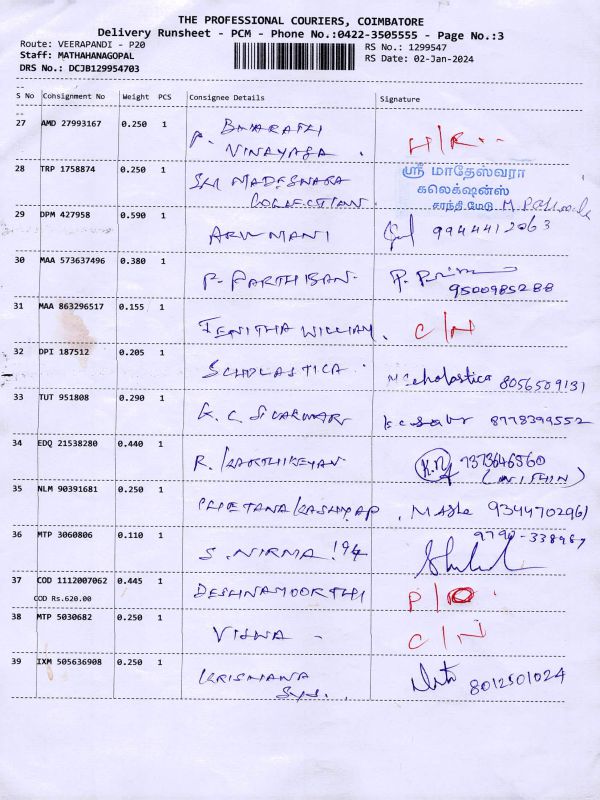 THE PROFESSIONAL COURIERS, COIMBATORE
Delivery Runsheet - PCM - Phone No.:0422-3505555 - Page No.:3
Route: VEERAPANDI - P20
RS No.: 1299547
Staff: MATHAHANAGOPAL
RS Date: 02-Jan-2024
DRS No.: DCJB129954703
S No Consignment No Weight PCS Consignee Details Signature
27 AMD 27993167 0.250 1 P. BHARATHI H/R
VINAYAGA.
28 TRP 1758874 0.250 1 SRI MADESWARA ஸ்ரீ மாதேஸ்வரா
COLLECTION கலெக்ஷன்ஸ்
சாந்தி மேடு M
29 DPM 427958 0.590 1 ARUMANI 9944412063
30 MAA 573637496 0.380 1 P. PARTHIBAN. P.
9500985288
31 MAA 863296517 0.155 1 JENITHA WILLIAM. C/N
32 DPI 187512 0.205 1 SCHOLASTICA Scholastica 8056509131
33 TUT 951808 0.290 1 K.C 8778399552
34 EDQ 21538280 0.440 1 R. KARTHIKEYAN K.N 7373646560
(NITHIN)
35 NLM 90391681 0.250 1 CHETANA KASHYAP 9344702961
36 MTP 3060806 0.110 1 S. NIRMA
37 COD 1112007062 0.445 1 P/O
COD Rs.620.00
38 MTP 5030682 0.250 1 VISHNA C/N
39 IXM 505636908 0.250 1 KRISHANA 8012501024
Sys.